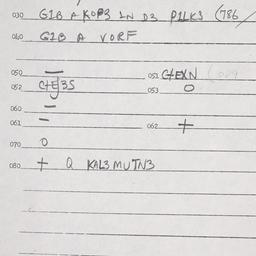 030 GIB A KOP3 IN D3 P1LK3 (786
040 GIB A VORF
050 —
051 C+EXN
052 C+E3S
053 O
060 —
061 —
062 +
070 O
080 + Q KAL3 MUTN3